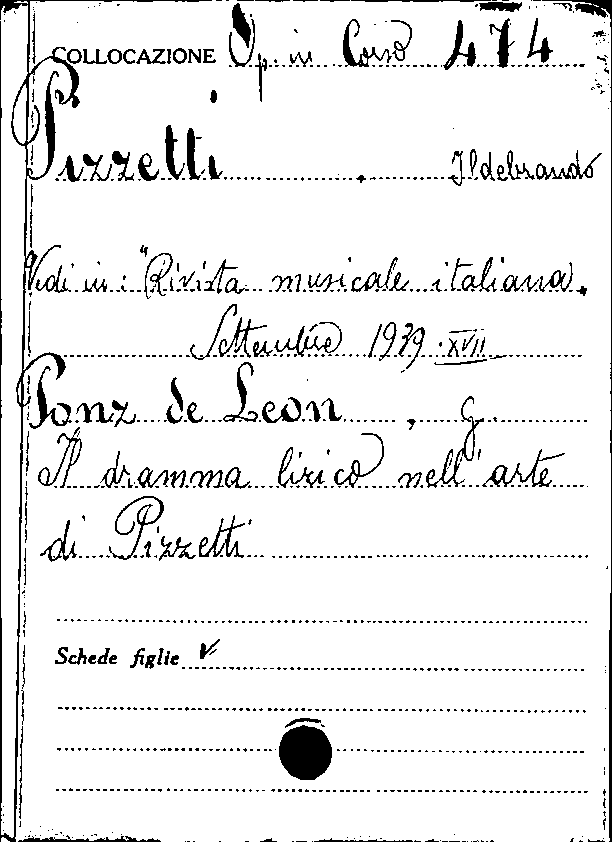 COLLOCAZIONE Op. in Corso 474
Pizzetti . Ildebrando
Vedi in: "Rivista musicale italiana.
Settembre 1939 . XVII
Ponz de Leon , G.
Il dramma lirico nell'arte
di Pizzetti
Schede figlie V